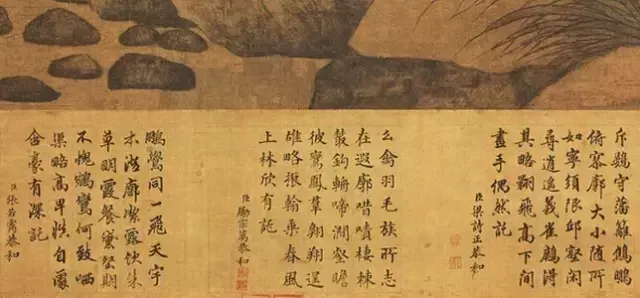 斥鷃守藩籬鵾鵬
脩寥廓大小随所
如寧須限邱壑閑
尋逍遙義雀鶴得
其略翔飛高下間
畫手偶然託
臣梁詩正恭和
幺禽羽毛族所志
在遐廓唶嘖棲棘
叢鉤輈啼澗壑瞻
彼鸞鳳羣翱翔逞
雄略振翰乘春風
上林欣有託
臣勵宗萬恭和
鵬鷽同一飛天宇
亦浩廓潔露飲朱
草明霞餐黛壑期
不愧鵷鸞何致哂
渠略高卑性自適
含豪有深託
臣張若靄恭和